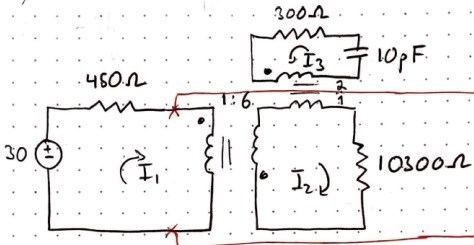 300Ω
I₃
10pF
460Ω
1:6
2
1
30
±
I₁
I₂
10300Ω